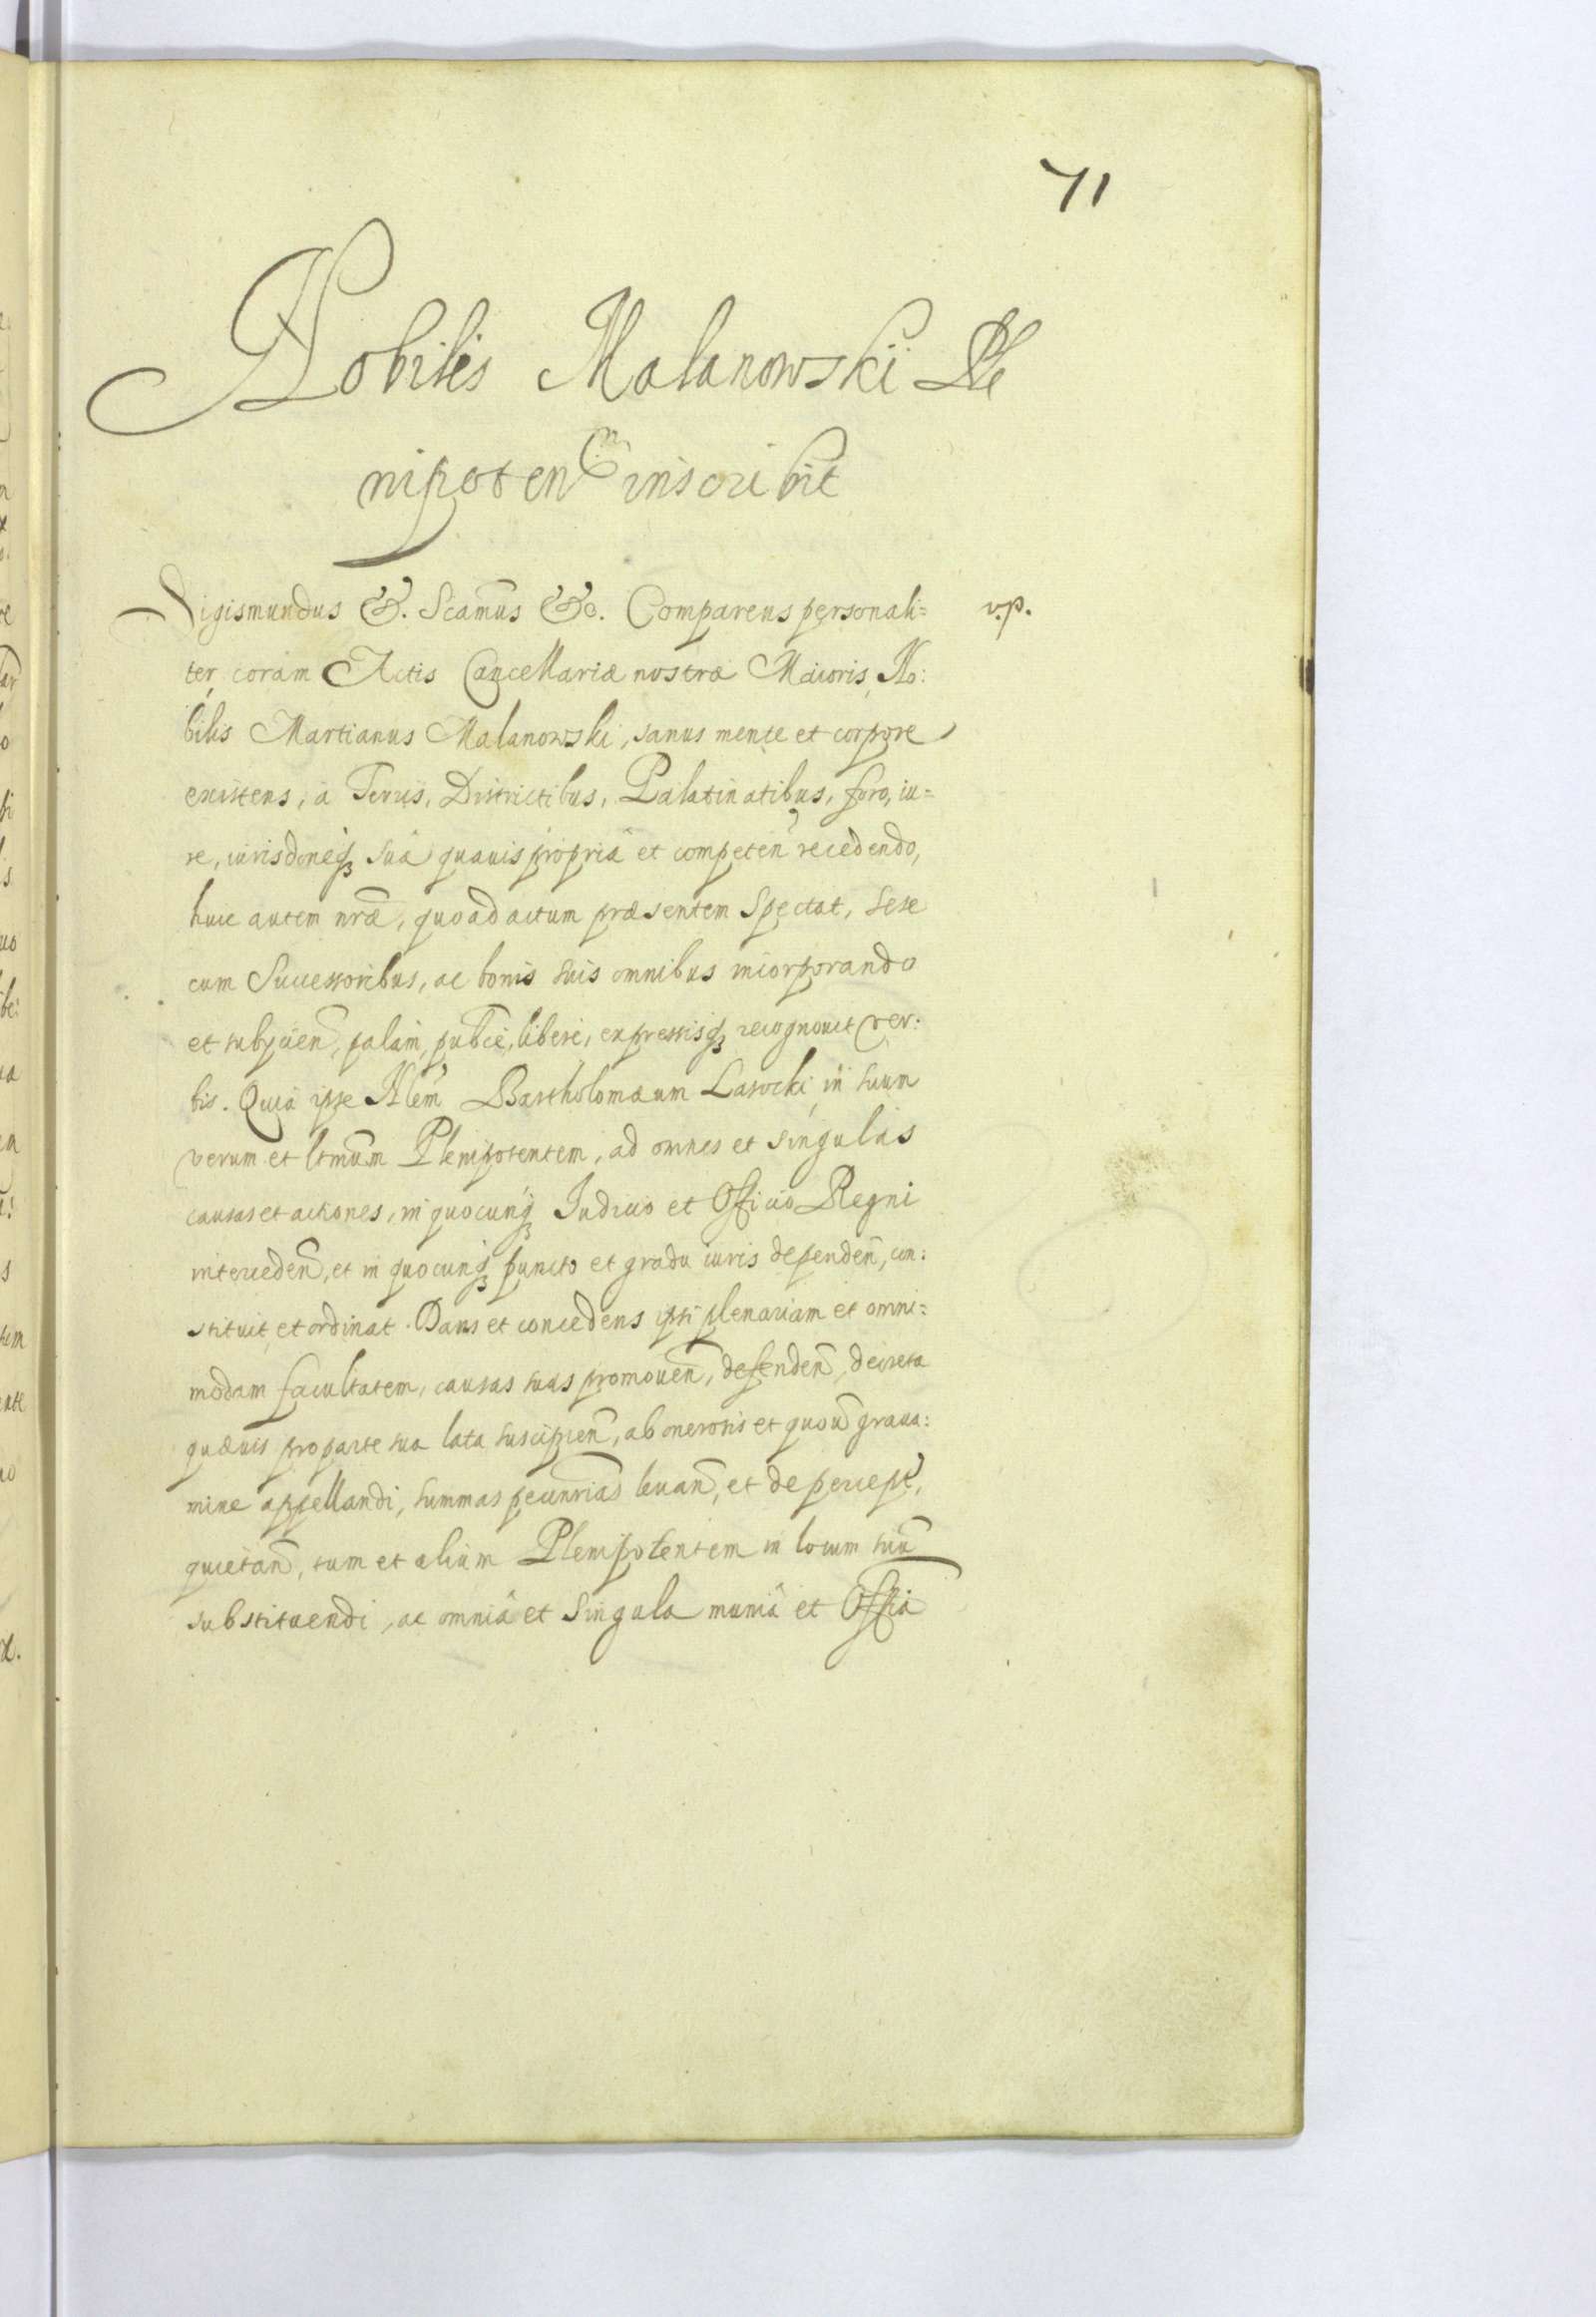 71
Nobilis Malanowski Ple
nipoten͠m inscribit
Sigismundus &. Scam̃us &c. Comparens personali=
v.p.
ter coram Actis Cancellariæ nostræ Maioris, No:
bilis Martianus Malanowski, sanus mente et corpore
existens, à Terris, Districtibus, Palatinatibus, foro, iu=
re, iurisdoneq₃ suâ quauis propriâ et competeñ recedendo,
huic autem nr̃æ, quo ad actum præsentem spectat, sese
cum Successoribus, ac bonis suis omnibus incorporando
et subijcień, palàm, pub͠cè, liberè, expressisq₃ recognouit ver:
bis. Quia ipse Nlem̃ Bartholomæum Lasocki in suum
verum et ltm̃um Plenipotentem, ad omnes et singulas
causas et actiones, in quocunq₃ Iudicio et Officio Regni
interuedeñ, et in quocunq₃ puncto et gradu iuris dependeñ, con:
stituit et ordinat. Dans et concedens ipsi plenariam et omni=
modam facultatem, causas suas promoueñ, defendeñ, decreta
quæuis pro parte sua lata suscipieñ, ab onerosis et quouῦ graua:
mine appellandi, summas pecun̄rias leuañ, et de percept̃,
quietañ, tum et alium Plenipotentem in locum suũ
substituendi, ac omnia et singula munia et Offi͠a